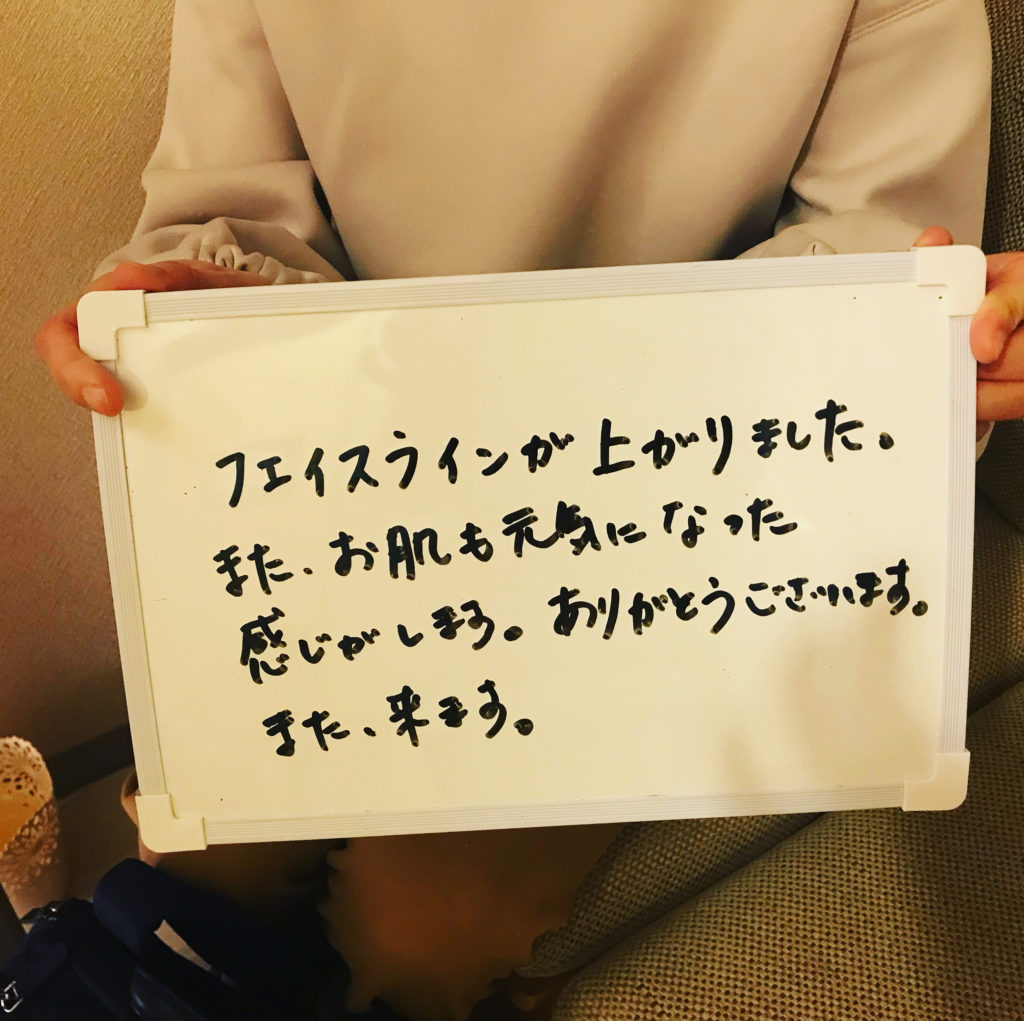 フェイスラインが上がりました。
また、お肌も元気になった
感じがします。ありがとうございます。
また、来ます。